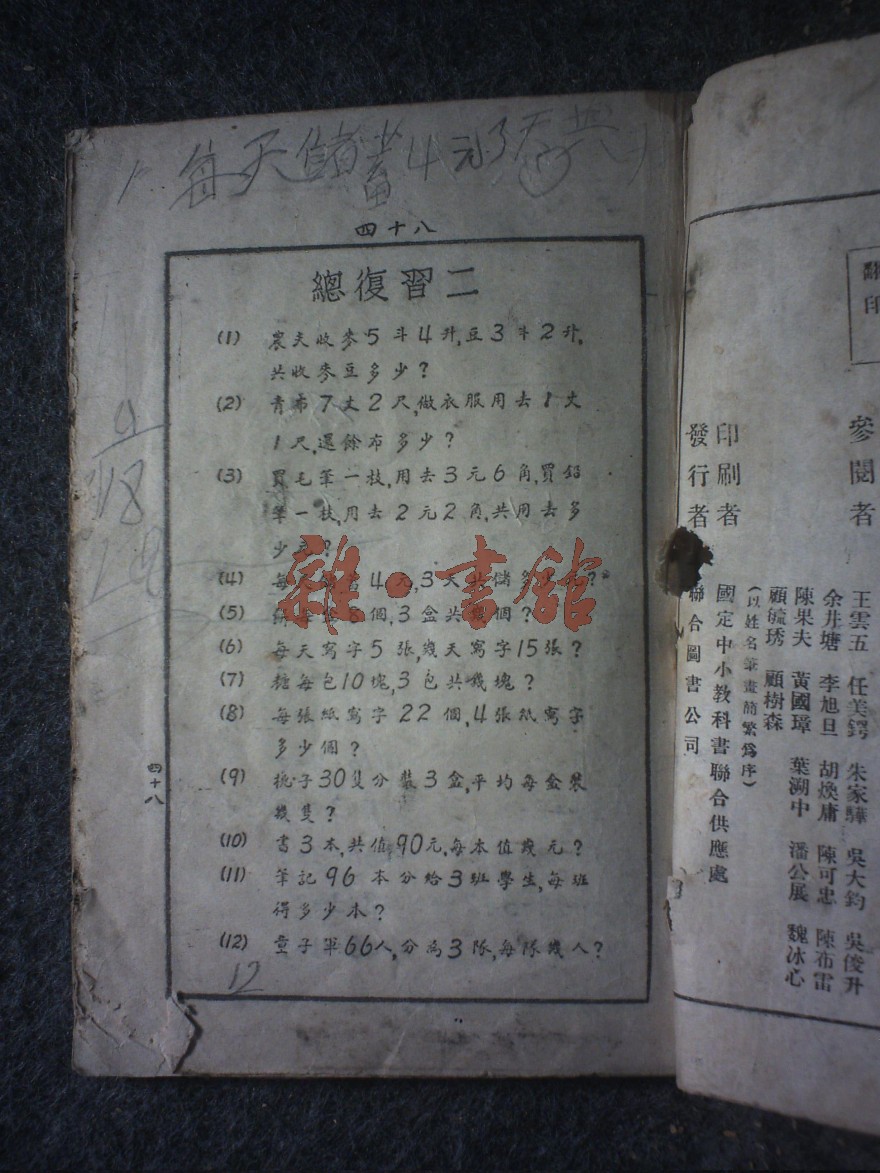 每天儲蓄4元3天共
四十八
總復習二
(1) 農夫收麥5斗4升,豆3斗2升,
共收麥豆多少?
(2) 青布7丈2尺,做衣服用去1丈
1尺,還餘布多少?
(3) 買毛筆一枝,用去3元6角,買鉛
筆一枝,用去2元2角,共用去多
少元?
(4) 每天儲蓄4元,3天共儲多少元?
(5) 每盒 個,3盒共幾個?
(6) 每天寫字5張,幾天寫字15張?
(7) 糖每包10塊,3包共幾塊?
(8) 每張紙寫字22個,4張紙寫字
多少個?
(9) 梔子30隻分裝3盒,平均每盒裝
幾隻?
(10) 書3本,共值90元,每本值幾元?
(11) 筆記96本分給3班學生,每班
得多少本?
(12) 童子軍66人,分為3隊,每隊幾人?
12
四十八
雜·書館
翻印
參閱者
王雲五 任美鍔 朱家驊 吳大鈞 吳俊升
余井塘 李旭旦 胡煥庸 陳可忠 陳布雷
陳果夫 黃國璋 葉溯中 潘公展 魏冰心
顧毓琇 顧樹森
(以姓名筆畫簡繁為序)
印刷者 國定中小教科書聯合供應處
發行者 聯合圖書公司